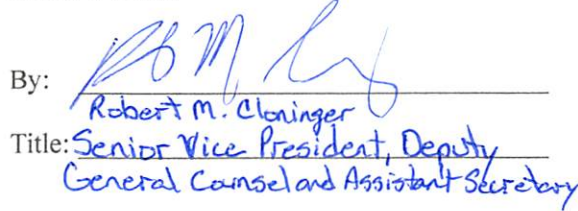 By:
Robert M. Cloninger
Title: Senior Vice President, Deputy
General Counsel and Assistant Secretary